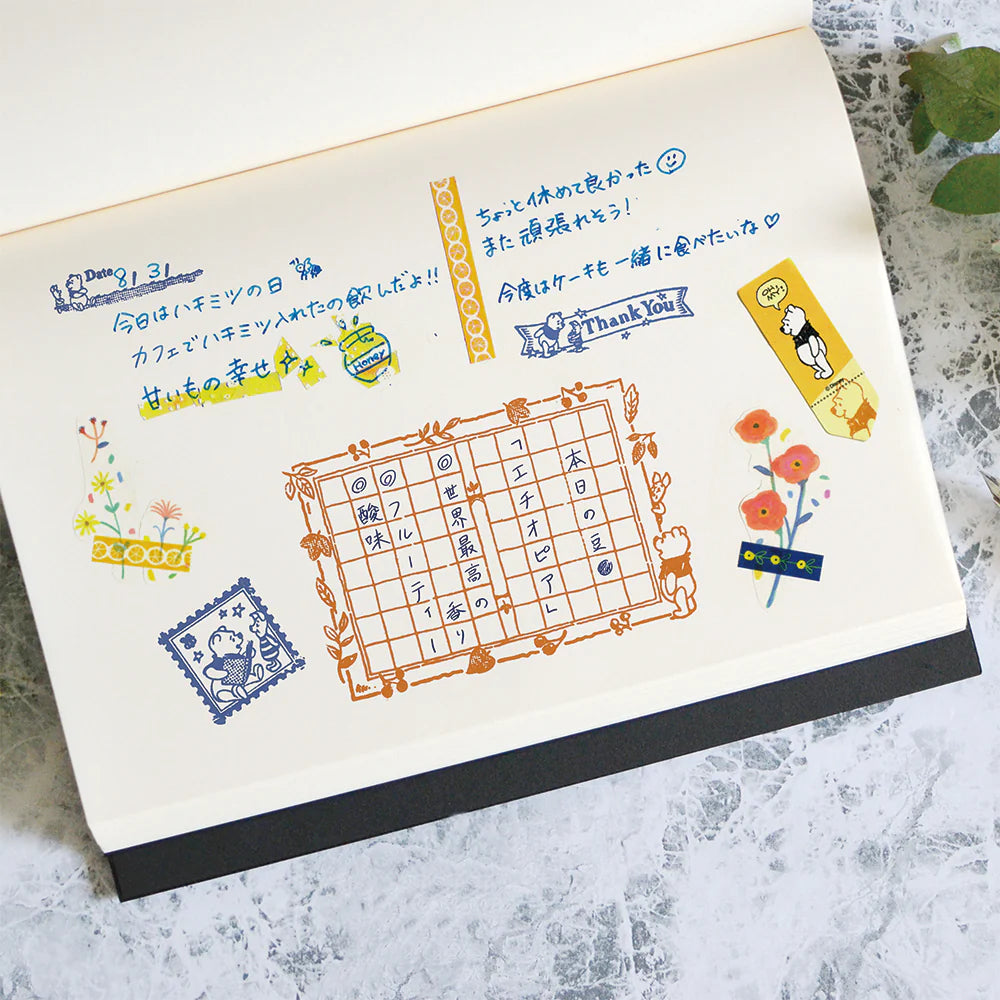 Date 8/31
今日はハチミツの日
カフェでハチミツ入れたの飲んだよ!!
甘いもの幸せ
Honey
ちょっと休めて良かった
また頑張れそう!
今度はケーキも一緒に食べたいな♡
Thank You
OH MY..
© Disney
本日の豆
「エチオピア」
◎世界最高の香り
◎フルーティー
◎酸味